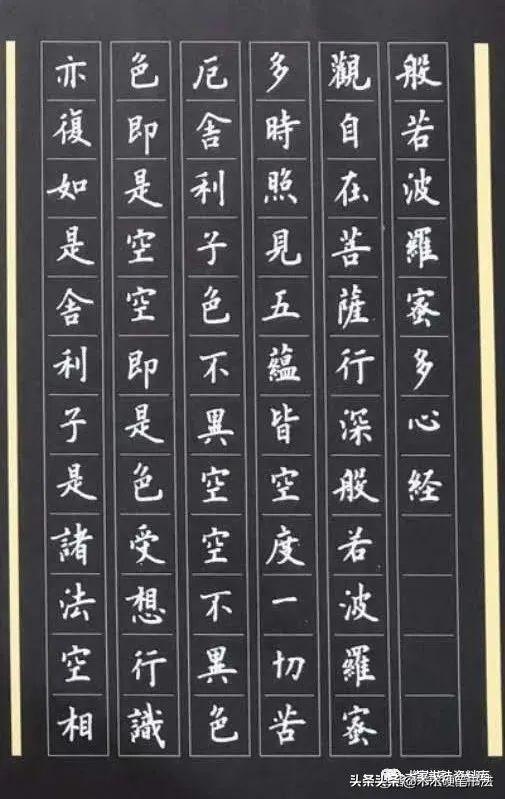 般若波羅蜜多心経
觀自在菩薩行深般若波羅蜜
多時照見五蘊皆空度一切苦
厄舍利子色不異空空不異色
色即是空空即是色受想行識
亦復如是舍利子是諸法空相